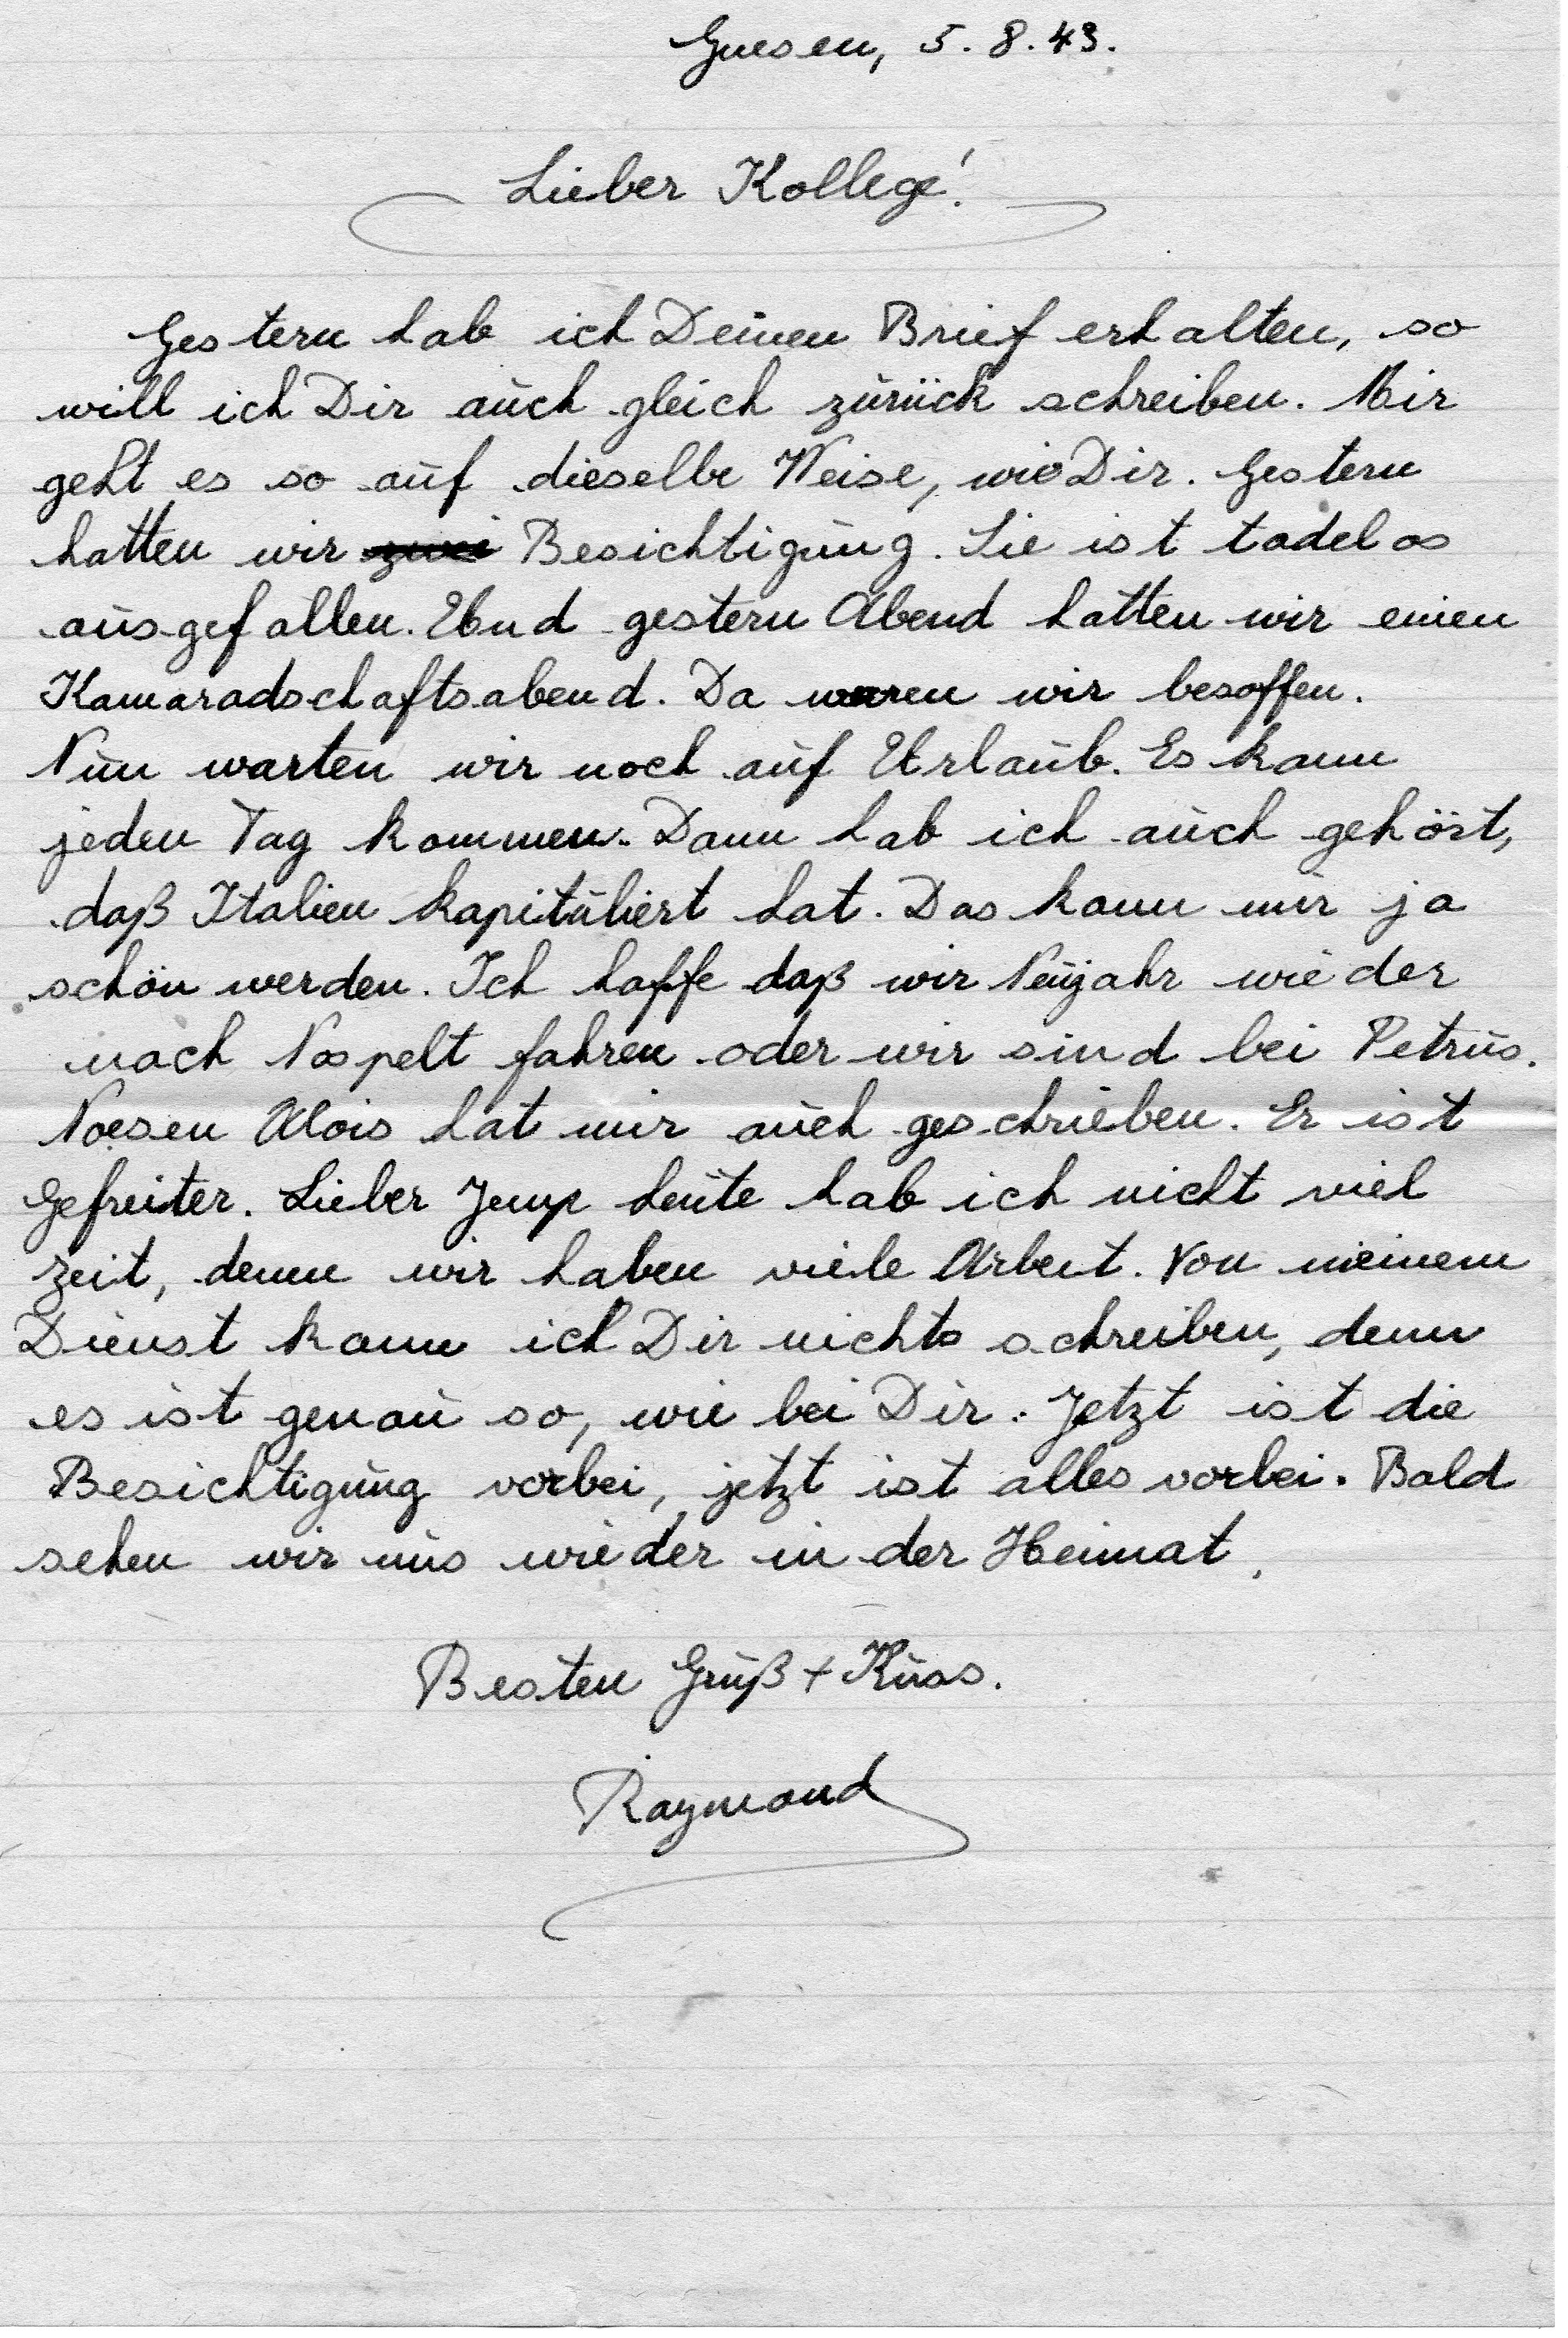 Gnesen, 5.8.43.
Lieber Kollege!
Gestern hab ich Deinen Brief erhalten, so
will ich Dir auch gleich zurück schreiben. Mir
geht es so auf dieselbe Weise, wie Dir. Gestern
hatten wir zwei Besichtigung. Sie ist tadelos
ausgefallen. Und gestern Abend hatten wir einen
Kamaradschaftsabend. Da waren wir besoffen.
Nun warten wir noch auf Urlaub. Es kann
jeden Tag kommen. Dann hab ich auch gehört,
daß Italien kapituliert hat. Das kann mir ja
schön werden. Ich hoffe daß wir Neujahr wieder
nach Nospelt fahren oder wir sind bei Petrus.
Noesen Alois hat mir auch geschrieben. Er ist
Gefreiter. Lieber Jemp heute hab ich nicht viel
Zeit, denn wir haben viele Arbeit. Von meinem
Dienst kann ich Dir nichts schreiben, denn
es ist genau so, wie bei Dir. Jetzt ist die
Besichtigung vorbei, jetzt ist alles vorbei. Bald
sehen wir uns wieder in der Heimat.
Besten Gruß + Kuss.
Raymond